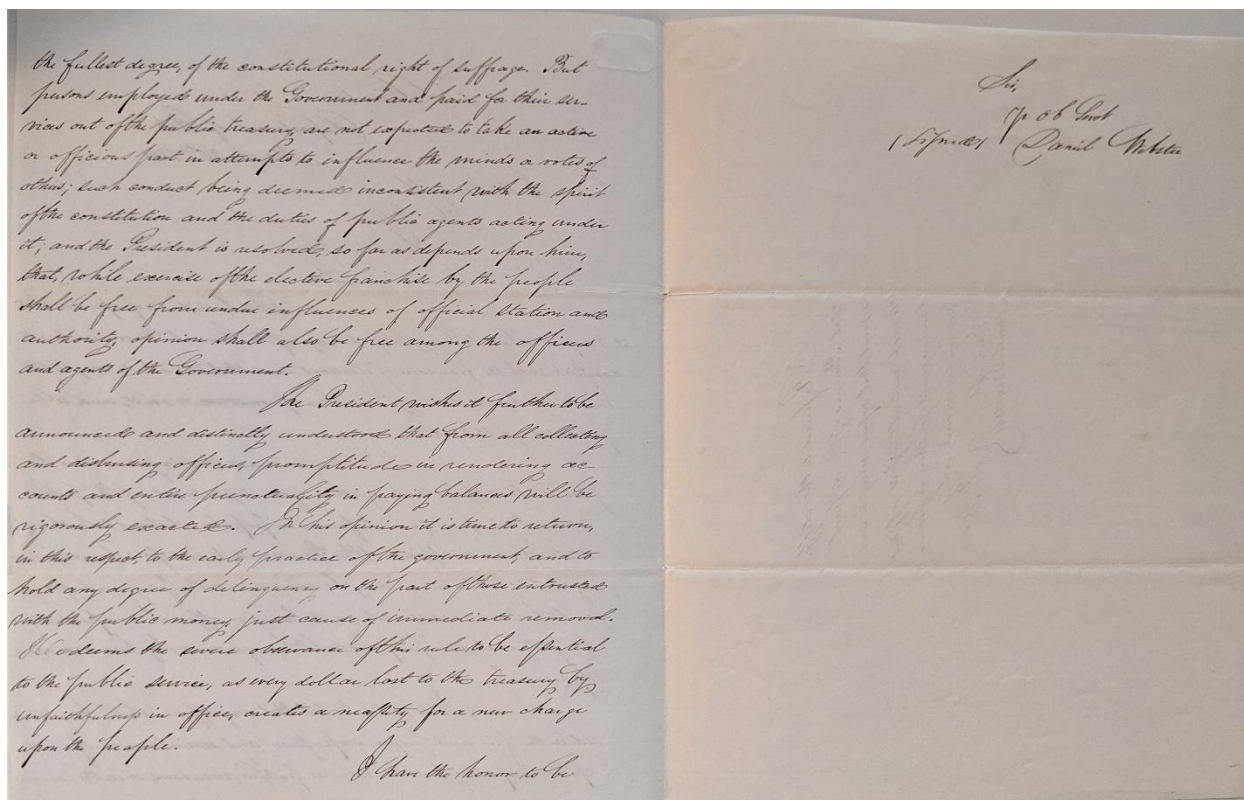 the fullest degree, of the constitutional right of suffrage. But
persons employed under the Government and paid for their ser-
vices out of the public treasury, are not expected to take an active
or officious part in attempts to influence the minds or votes of
others; such conduct being deemed inconsistent with the spirit
of the constitution and the duties of public agents acting under
it; and the President is resolved, so far as depends upon him,
that, while exercise of the elective franchise by the people
shall be free from undue influences of official station and
authority, opinion shall also be free among the officers
and agents of the Government.
The President wishes it further to be
announced and distinctly understood that from all collecting
and disbursing officers, promptitude in rendering ac-
counts and entire punctuality in paying balances will be
rigorously exacted. In his opinion it is time to return,
in this respect, to the early practice of the government, and to
hold any degree of delinquency on the part of those entrusted
with the public money, just cause of immediate removal.
He deems the severe observance of this rule to be essential
to the public service, as every dollar lost to the treasury by
unfaithfulness in office, creates a necessity for a new charge
upon the people.
I have the honor to be
Sir,
Yr ob Servt
(Signed) Daniel Webster